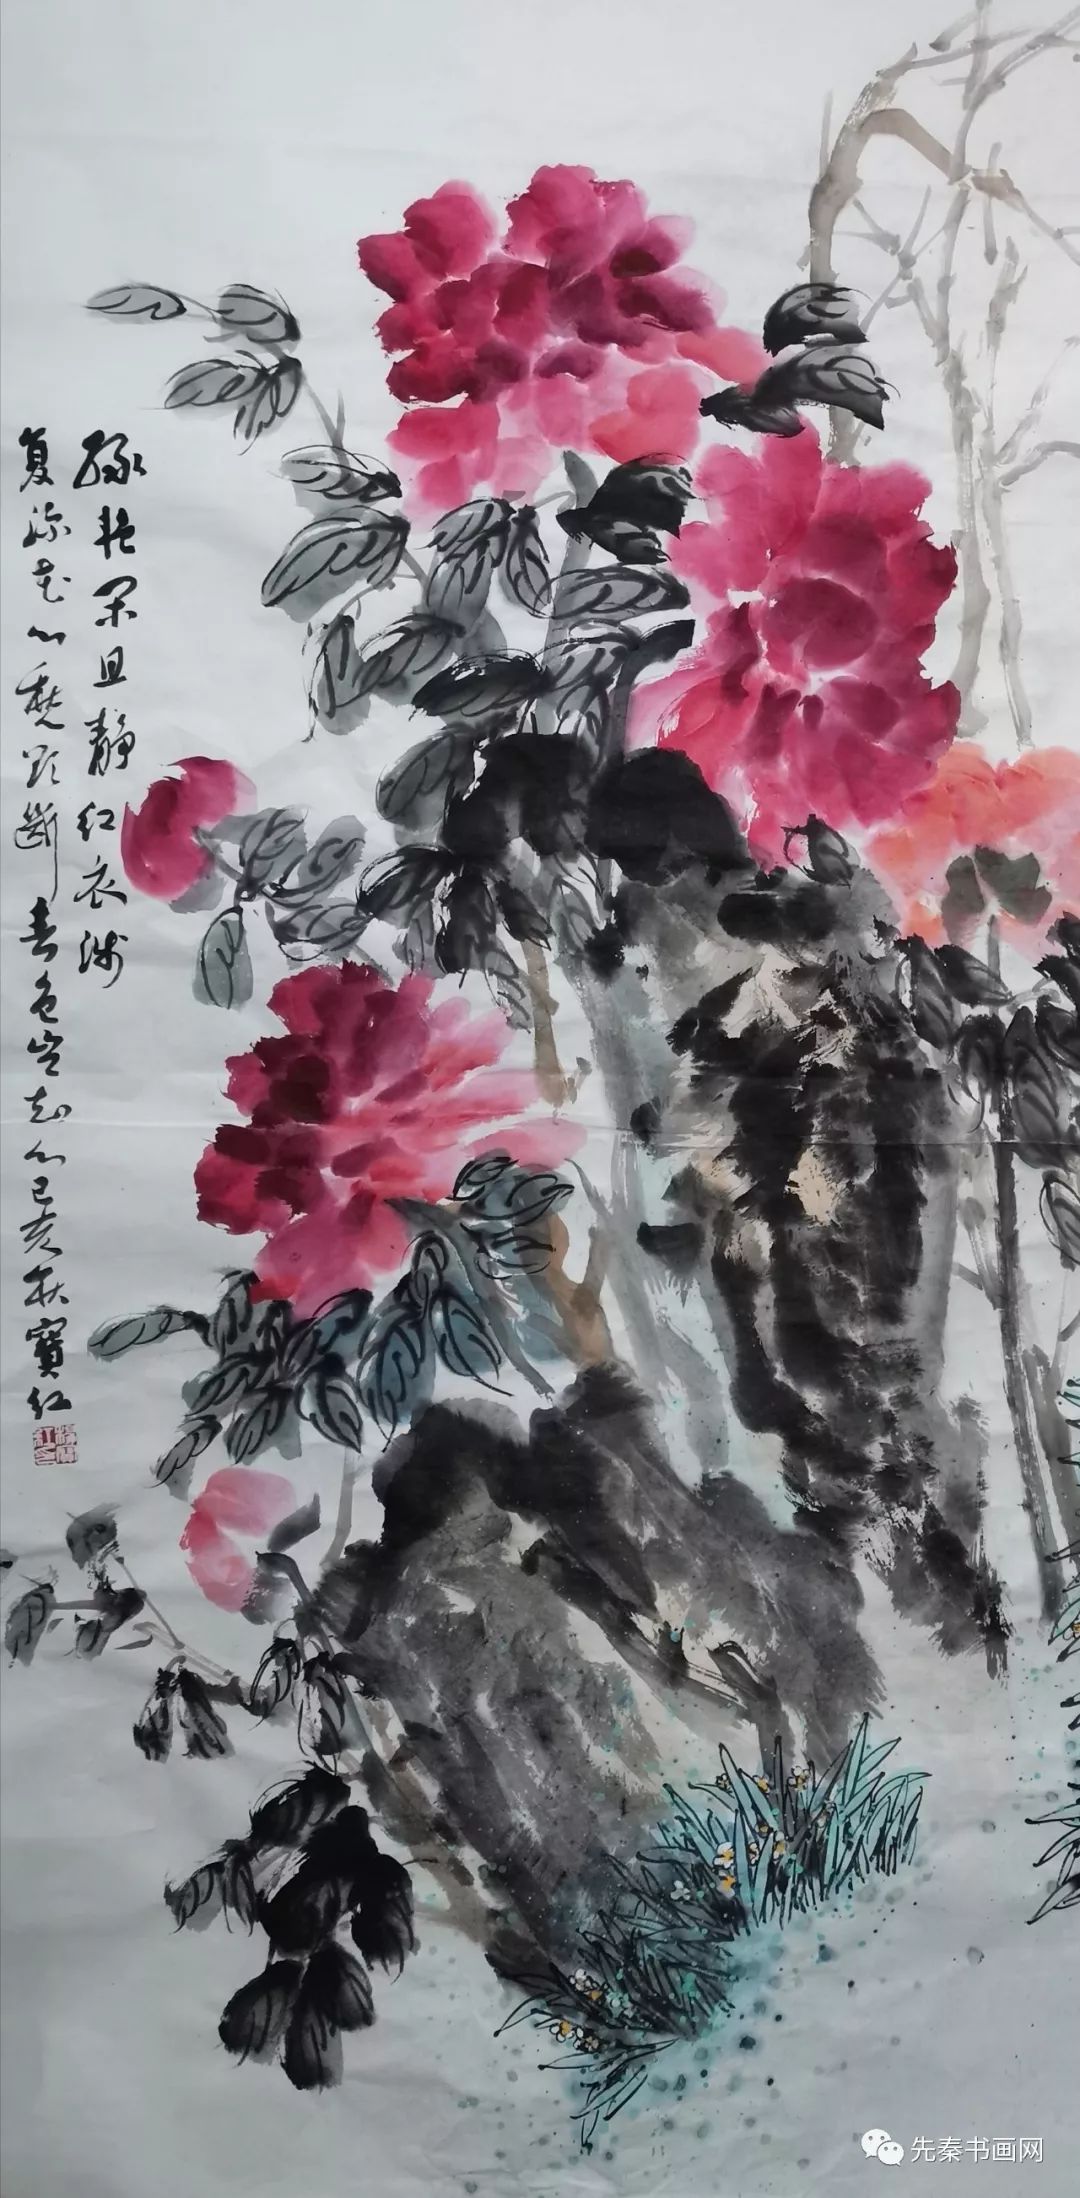 绿艳闲且静红衣浅
复深花心愁欲断春色岂知心己亥秋寶红
先秦书画网